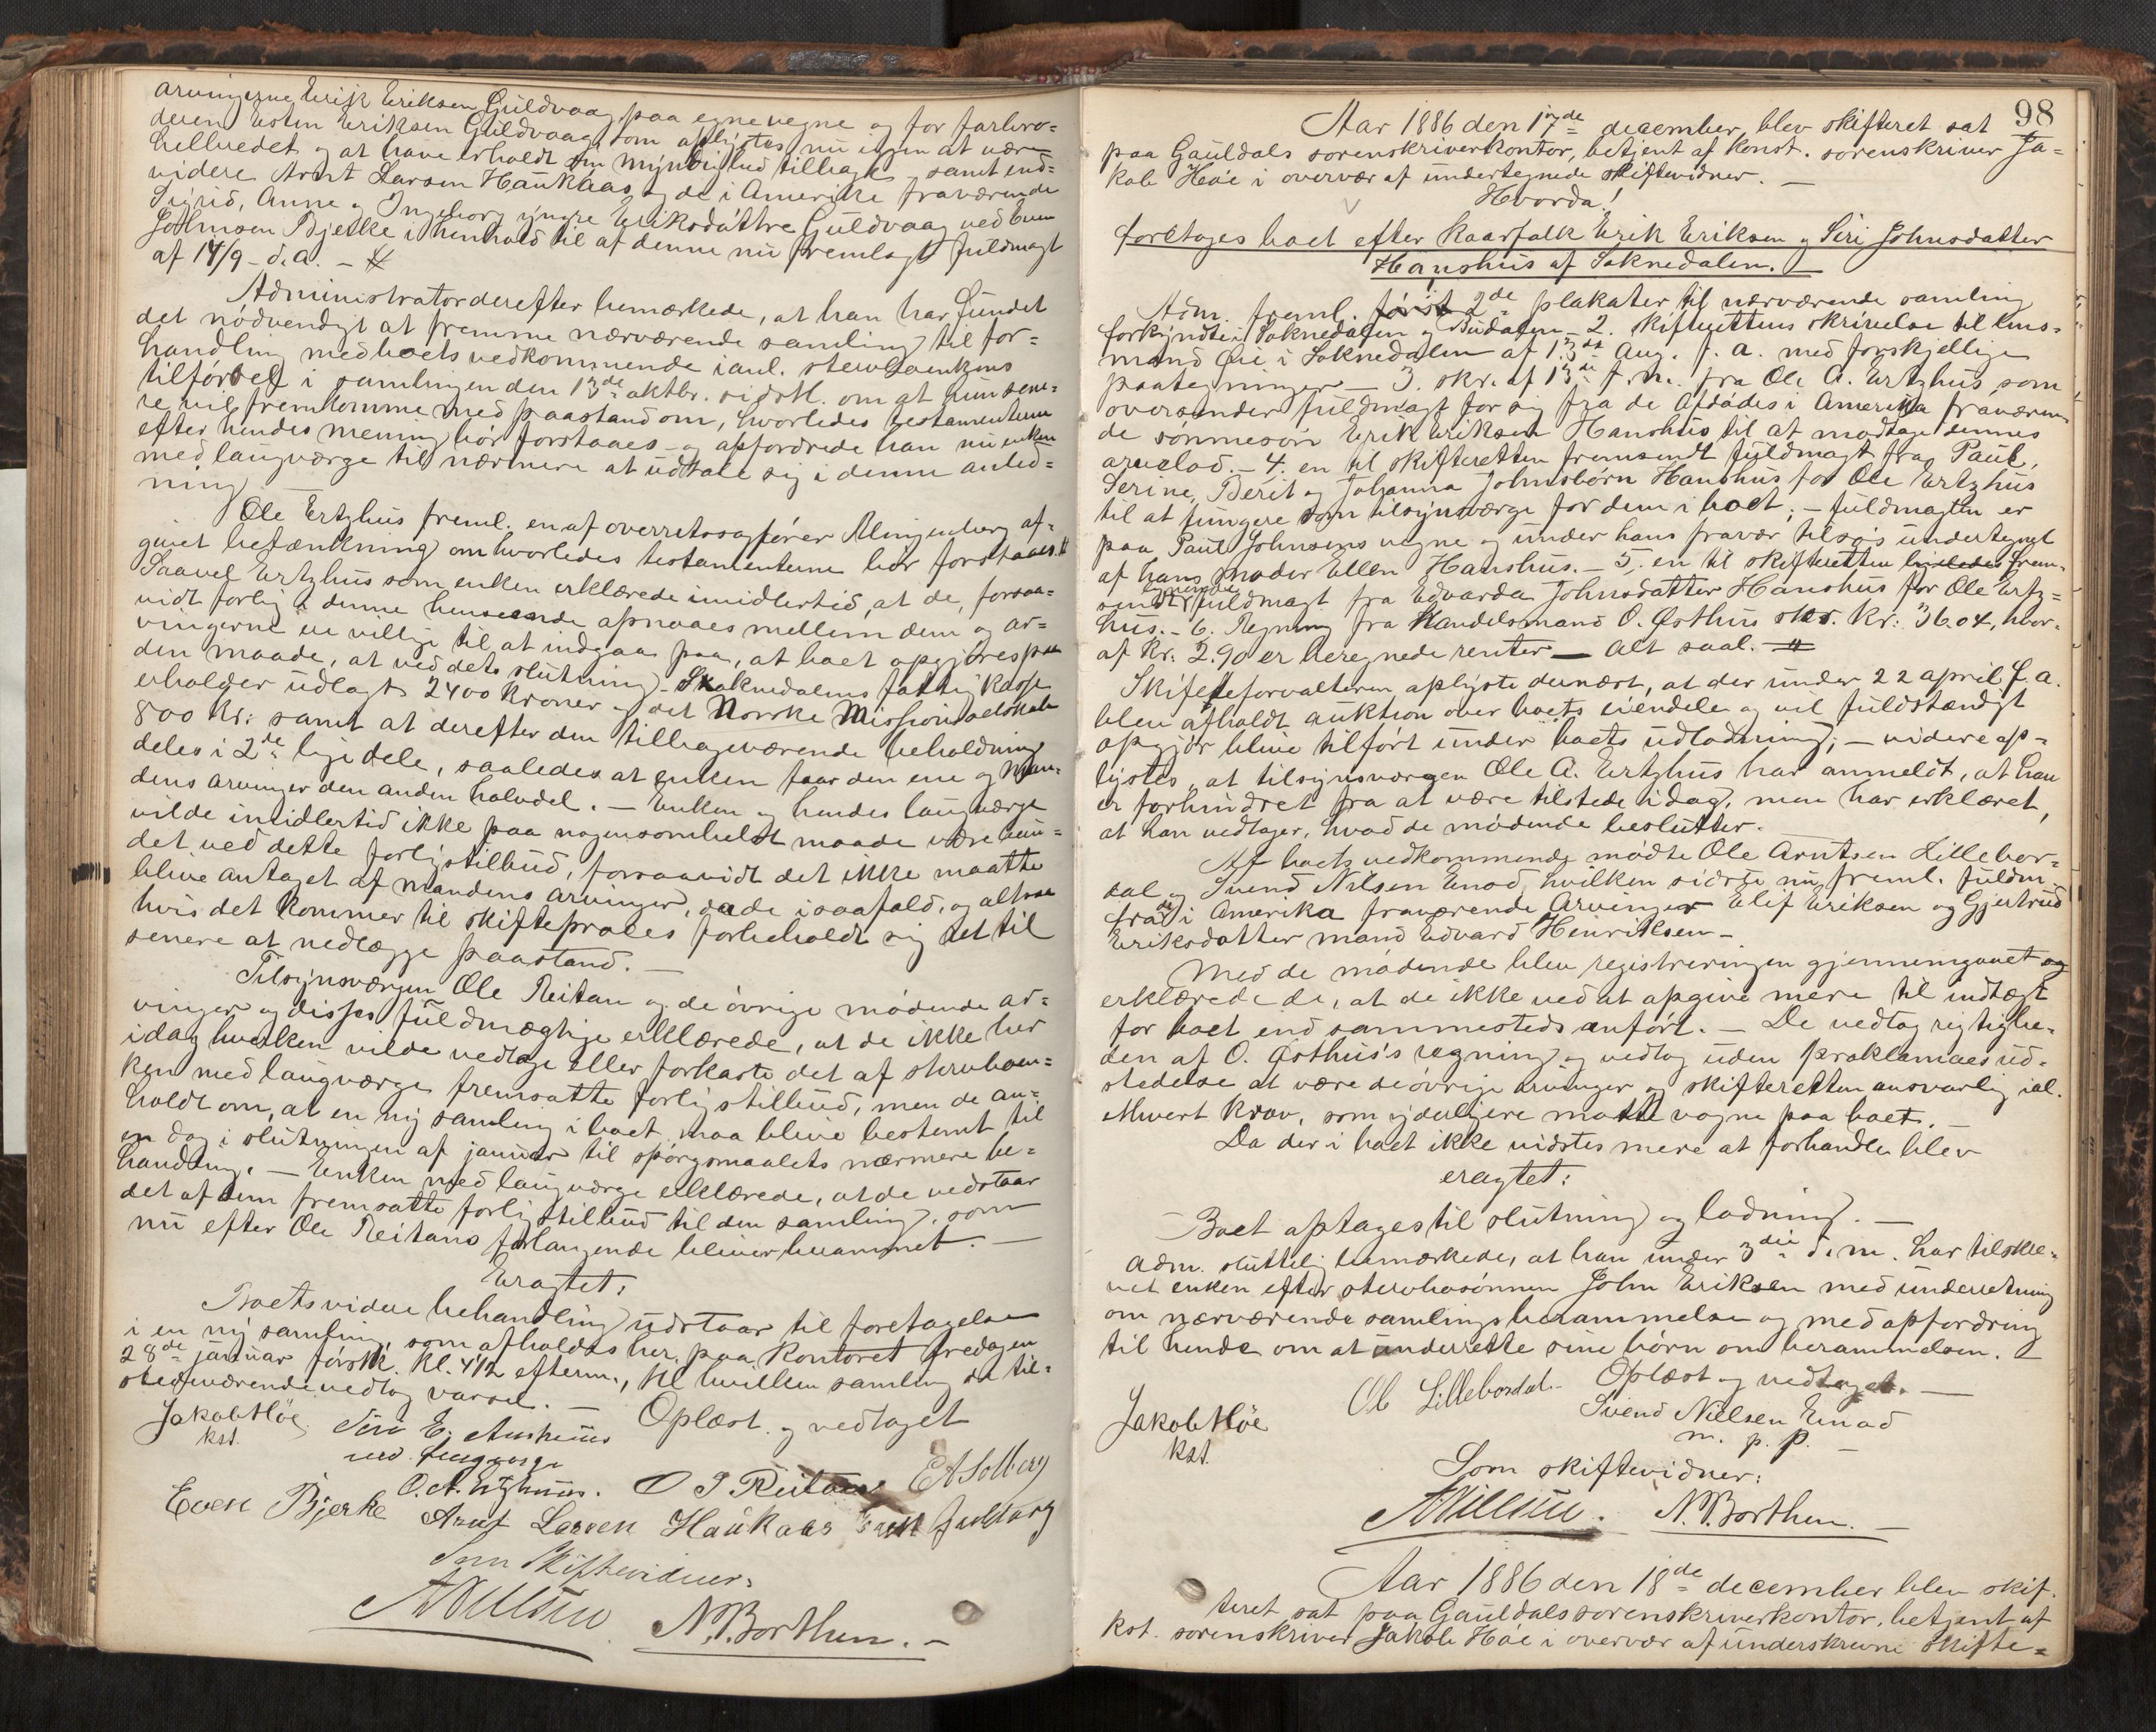 arvingerne Erik Eriksen Guldvaag paa egne vegne og for farbro-
deren Esten Eriksen Guldvaag som oplystes nu igjen at være
helbredet og at have erholdt sin myndighed tilbage, samt end-
videre Arnt Larsen Haukaas og de i Amerika fraværende
Sigrid, Anne og Ingeborg yngre Eriksdøttre Guldvaag ved Even
Johnsen Bjerke i henhold til af denne nu fremlagt fuldmagt
af 14/9 d. a. —
Administrator derefter bemærkede, at han har fundet
det nødvendigt at fremme nærværende samling til for-
handling med boets vedkommende i anl. stervboenkens
tilførsel i samlingen den 13de oktbr. sidstl. om at hun sene-
re vil fremkomme med paastand om, hvorledes testamenterne
efter hendes mening bør forstaaes og opfordrede han nu enken
med laugværge til nærmere at udtale sig i denne anled-
ning.
Ole Ertzhus freml. en af overretssagfører Klingenberg af-
givet betænkning om hvorledes testamenterne bør forstaaes.
Saavel Ertzhus som enken erklærede imidlertid, at de, forsaa-
vidt forlig i denne henseende opnaaes mellem dem og ar-
vingerne ere villige til at indgaa paa, at boet opgjøres paa
den maade, at ved dets slutning Soknedalens fattigkasse
erholder udlagt 2400 kroner og det Norske Missionsselskab
800 kr. samt at derefter den tilbageværende beholdning
deles i 2de lige dele, saaledes at enken faar den ene og man-
dens arvinger den anden halvdel. — Enken og hendes laugværge
vilde imidlertid ikke paa nogensomhelst maade være bun-
det ved dette forligstilbud, forsaavidt det ikke maatte
blive antaget af mandens arvinger, da de isaafald, og altsaa
hvis det kommer til skifteproces forbeholdt sig det til
senere at nedlægge paastand. —
Tilsynsværgen Ole Reitan og de øvrige mødende ar-
vinger og disses fuldmægtige erklærede, at de ikke her
idag hverken vilde vedtage eller forkaste det af stervboen-
ken med laugværge fremsatte forligstilbud, men de an-
holdt om, at en ny samling i boet maa blive bestemt til
en dag i slutningen af januar til spørgsmaalets nærmere be-
handling. — Enken med laugværge erklærede, at de vedstaar
det af dem fremsatte forligstilbud til den samling, som
nu efter Ole Reitans forlangende bliver berammet. —
Eragtet:
Boets videre behandling udstaar til foretagelse
i en ny samling, som afholdes her paa kontoret fredagen
28de januar førstk. kl. 4 1/2 efterm., til hvilken samling de til-
stedeværende vedtog varsel. —
Oplæst og vedtaget
Jakob Høe
kst.
Siri E.
med laugværge
O. A. Ertzhus. O J Reitan E A Solberg
Even Bjerke Arnt Larsen Haukaas Erik Guldvaag
Som Skiftevidner:
N. P. Borthen. —
98
Aar 1886 den 17de december blev skifteret sat
paa Gauldals sorenskriverkontor, betjent af konst. sorenskriver Ja-
kob Høe i overvær af undertegnede skiftevidner. —
Hvorda!
foretages boet efter kaarfolk Erik Eriksen og Siri Johnsdatter
Hanshus af Soknedalen. —
Adm. freml. først 2de plakater til nærværende samling
forkyndte i Soknedalen og Budalen — 2. skifterettens skrivelse til lens-
mand Øie i Soknedalen af 13de Aug. f. a. med forskjellige
paategninger — 3. skr. af 13de f. m. fra Ole A. Ertzhus som
oversender fuldmagt for sig fra de afdødes i Amerika fraværen-
de sønnesøn Erik Eriksen Hanshus til at modtage dennes
arvelod. — 4. en til skifteretten fremsendt fuldmagt fra Paul,
Serine, Berit og Johanna Johnsbørn Hanshus for Ole Ertzhus
til at fungere som tilsynsværge for dem i boet; — fuldmagten er
paa Paul Johnsens vegne og under hans fravær tilsøs undertegnet
af hans moder Ellen Hanshus. — 5. en til skifteretten ligeledes frem-
sendt lignende fuldmagt fra Edvarda Johnsdatter Hanshus for Ole Ertz-
hus. — 6. Regning fra Handelsmand O. Østhus stor. kr: 36.04, hvor-
af kr: 2.90 er beregnede renter — alt saal. —
Skifteforvalteren oplyste dernæst, at der under 22 april f. a.
blev afholdt auktion over boets eiendele og vil fuldstændigt
opgjør blive tilført under boets udlodning; — videre op-
lystes, at tilsynsværgen Ole A. Ertzhus har anmeldt, at han
er forhindret fra at være tilstede idag, men har erklæret,
at han vedtager, hvad de mødende beslutter.
Af boets vedkommende mødte Ole Arntsen Lillebor-
dal og Svend Nilsen Enod, hvilken sidste nu freml. fuldm.
fra de i Amerika fraværende Arvinger Elif Eriksen og Gjertrud
Eriksdatter mand Edvard Henriksen —
Med de mødende blev registreringen gjennemgaaet og
erklærede de, at de ikke ved at opgive mere til indtægt
for boet end sammesteds anført. — De vedtog rigtighe-
den af O. Østhus's regning og vedtog uden proklamaes ud-
stedelse at være de øvrige arvinger og skifteretten ansvarlig i al.
ethvert krav, som yderligere maatte vogne paa boet. —
Da der i boet ikke vidstes mere at forhandle blev
eragtet:
Boet optages til slutning og lodning. —
Adm. sluttelig bemærkede, at han under 3die d. m. har tilskre-
vet enken efter stervbosønnen John Eriksen med underretning
om nærværende samlings berammelse og med opfordring
til hende om at underrette sine børn om berammelsen. —
Oplæst og vedtaget. —
Jakob Høe
kst.
Ol Lillebordal. Svend Nielsen Enod
m. p. p. —
Som skiftevidner:
N. P. Borthen. —
Aar 1886 den 18de december blev skif-
teret sat paa Gauldals sorenskriverkontor, betjent af
kst. sorenskriver Jakob Høe i overvær af underskrevne skifte-